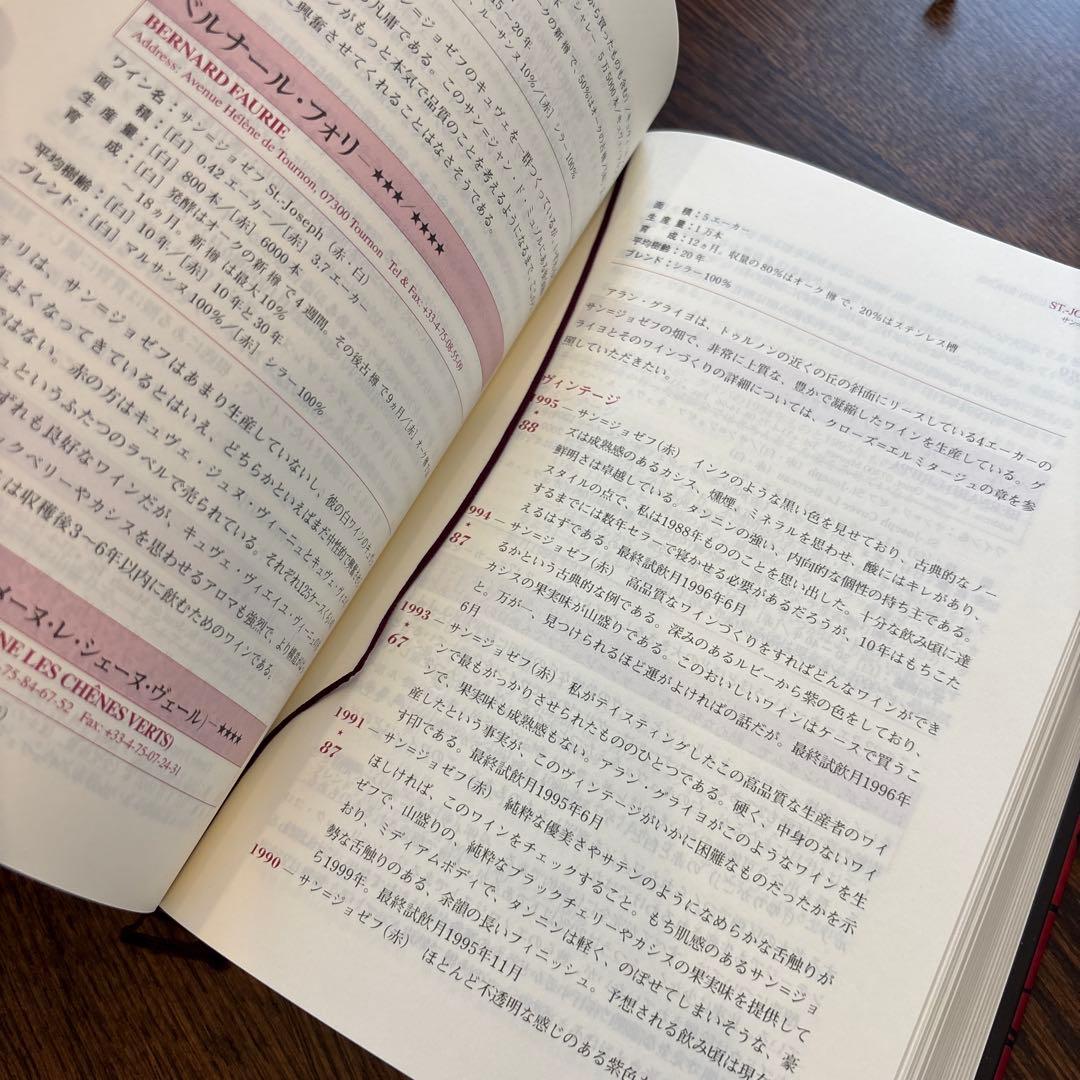 から買ったものも含む）
15〜20年
ルーサンヌ10%／[赤] シラー100%
凡庸である。このサン=ジャン・ド・ミュゾルにある
サン=ジョゼフのキュヴェを一群つくっているが、
ンがもっと本気で品質のことを考えるようになるまで、
興奮させてくれることはなさそうである。
ベルナール・フォリ―★★★/★★★★
BERNARD FAURIE
Address: Avenue Hélène de Tournon, 07300 Tournon Tel.& Fax: +33-4-75-08-55-09
ワイン名：サン=ジョゼフ St.-Joseph（赤・白）
面　積：[白] 0.42エーカー／[赤] 3.7エーカー
生産量：[白] 800本／[赤] 6000本
育　成：[白] 発酵はオークの新樽で4週間。その後古樽で9ヵ月／[赤]
〜18ヵ月、新樽は最大10%
平均樹齢：[白] 10年／[赤] 10年と30年
ブレンド：[白] マルサンヌ100%／[赤] シラー100%
ォリは、サン=ジョゼフはあまり生産していないし、彼の白ワインのキュ
年よくなってきているとはいえ、どちらかといえばまだ中性的で
ではない。赤の方はキュヴェ・ジュヌ・ヴィーニュとキュヴェ・ヴィ
ュというふたつのラベルで売られている。それぞれ125ケースくらい
ずれも良好なワインだが、キュヴェ・ヴィエイユ・ヴィーニュの
ックベリーやカシスを思わせるアロマも強烈で、より
は収穫後3〜6年以内に飲むためのワインである。
メーヌ・レ・シェーヌ・ヴェール)―★★★★
NE LES CHÊNES VERTS)
-75-84-67-52 Fax: +33-4-75-07-24-31
ST.-JO
面　積：5エーカー
生産量：1万本
育　成：12ヵ月。収量の80%はオーク樽で、20%はステンレス槽
平均樹齢：20年
ブレンド：シラー100%
アラン・グライヨは、トゥルノンの近くの丘の斜面にリースしている4エーカーの
サン=ジョゼフの畑で、非常に上質な、豊かで凝縮したワインを生産している。グ
ライヨとそのワインづくりの詳細については、クローズ=エルミタージュの章を参
照していただきたい。
ヴィンテージ
1995―サン=ジョゼフ（赤）　インクのような黒い色を見せており、古典的なノー
★
88
ズは成熟感のあるカシス、燻煙、ミネラルを思わせ、酸にはキレがあり、
鮮明さは卓越している。タンニンの強い、内向的な個性の持ち主である。
スタイルの点で、私は1988年もののことを思い出した。十分な飲み頃に達
するまでには数年セラーで寝かせる必要があるだろうが、10年はもちこた
えるはずである。最終試飲月1996年6月
1994―サン=ジョゼフ（赤）　高品質なワインづくりをすればどんなワインができ
★
87
るかという古典的な例である。深みのあるルビーから紫の色をしており、
カシスの果実味が山盛りである。このおいしいワインはケースで買うこ
と。万が一、見つけられるほど運がよければの話だが。最終試飲月1996年
6月
1993―サン=ジョゼフ（赤）　私がテイスティングしたこの高品質な生産者のワイ
★
67
ンで最もがっかりさせられたもののひとつである。硬く、中身のないワイ
ンで、果実味も成熟感もない。アラン・グライヨがこのようなワインを生
産したという事実が、このヴィンテージがいかに困難なものだったかを示
す印である。最終試飲月1995年6月
1991―サン=ジョゼフ（赤）　純粋な優美さやサテンのようになめらかな舌触りが
★
87
ほしければ、このワインをチェックすること。もち肌感のあるサン=ジョ
ゼフで、山盛りの、純粋なブラックチェリーやカシスの果実味を提供して
おり、ミディアムボディで、タンニンは軽く、のぼせてしまいそうな、豪
勢な舌触りのある、余韻の長いフィニッシュ。予想される飲み頃は現在か
ら1999年。最終試飲月1995年11月
1990―サン=ジョゼフ（赤）　ほとんど不透明な感じのある紫色